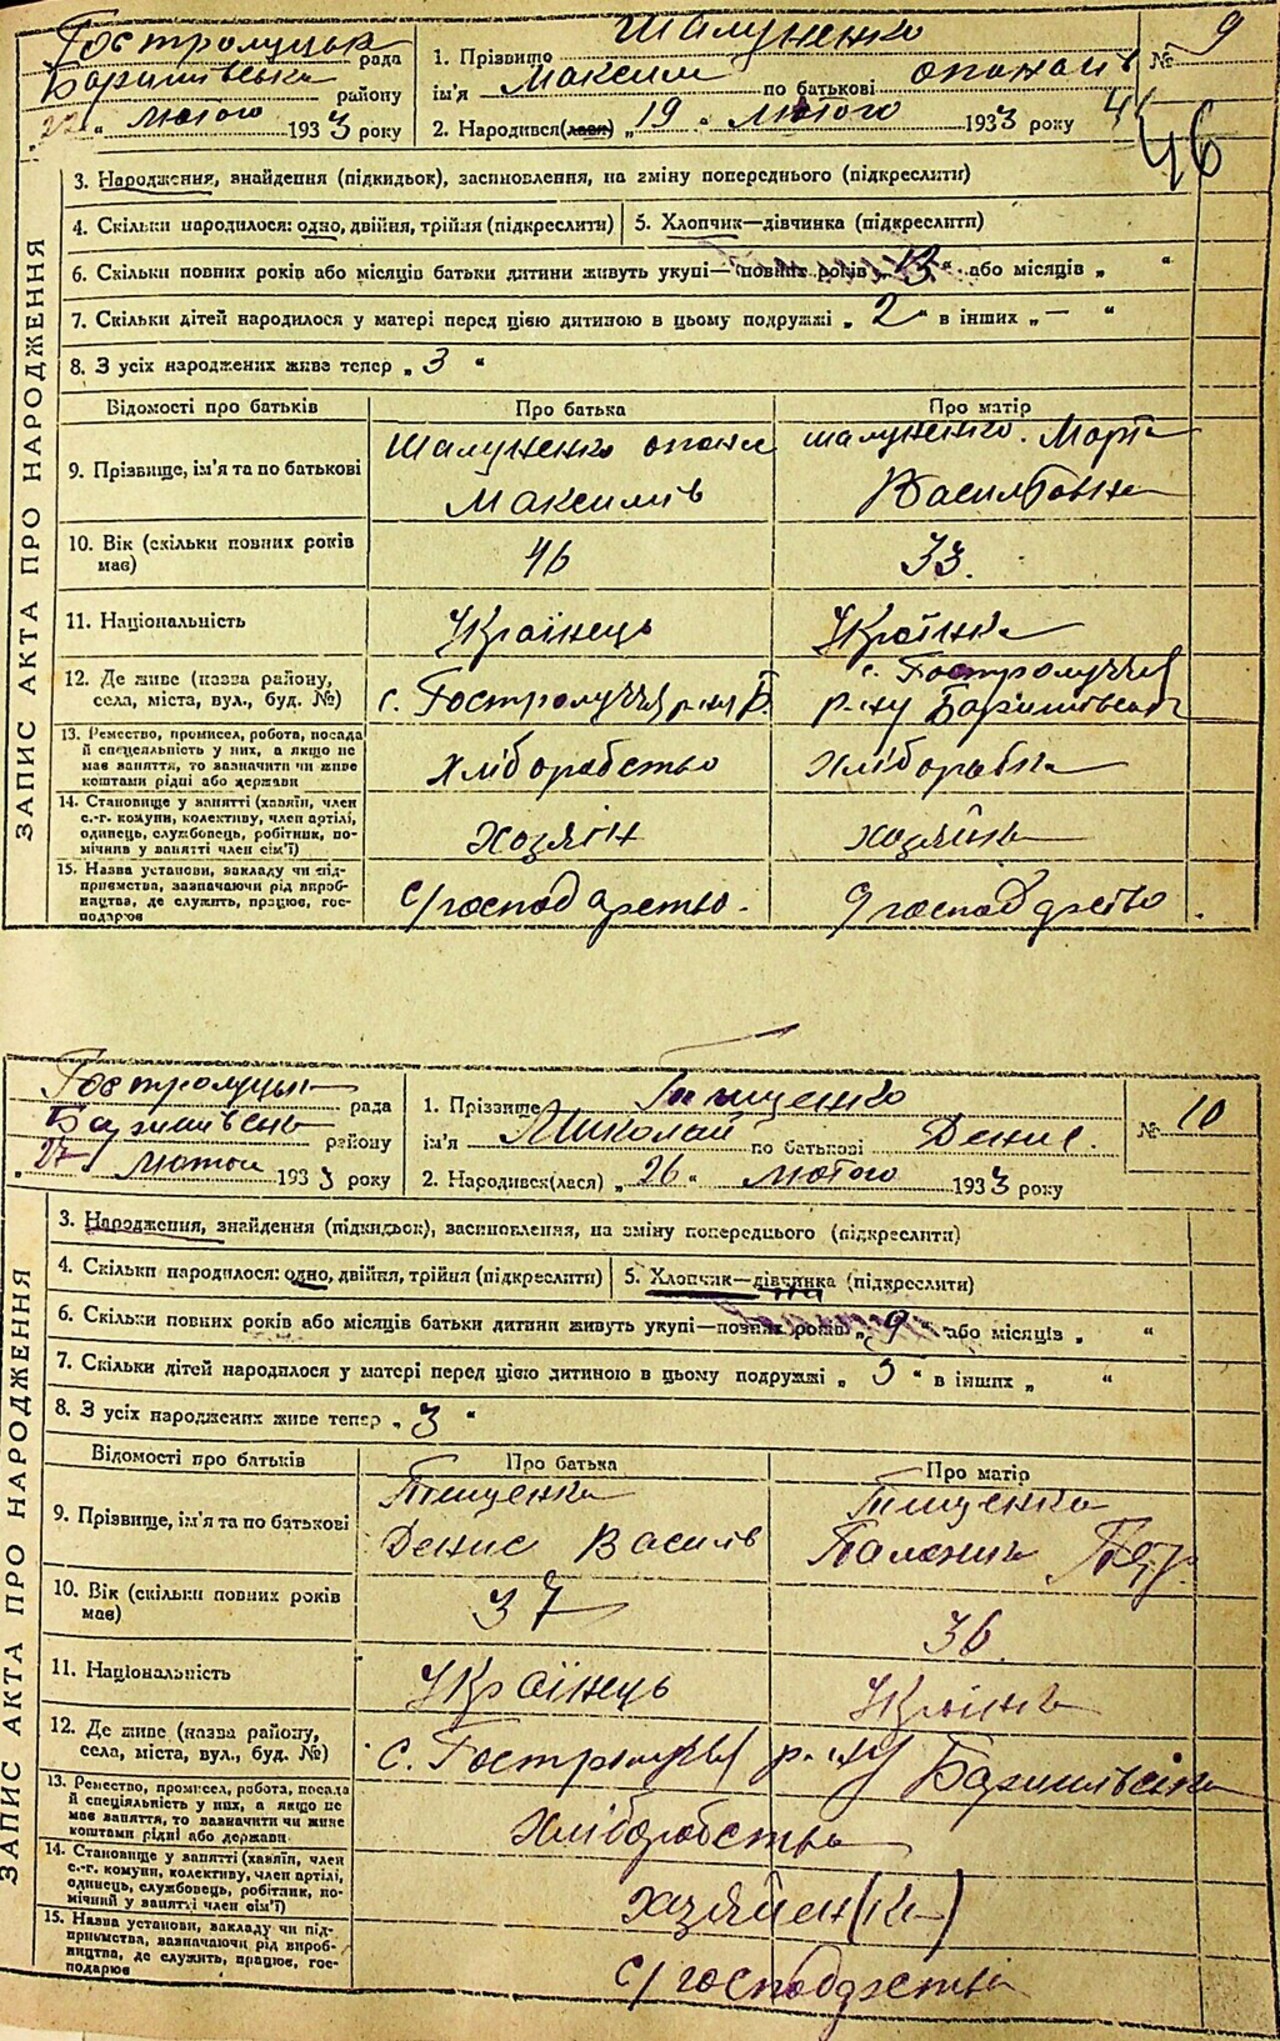 Гостролуцька рада
Баришівська району
"22" лютого 1933 року
1. Прізвище Шалуненко
ім'я Максим по батькові опанасів
2. Народився(лася) „19" лютого 1933 року
№ 9
46
ЗАПИС АКТА ПРО НАРОДЖЕННЯ
3. Народження, знайдення (підкидьок), засиновлення, на зміну попереднього (підкреслити)
4. Скільки народилося: одно, двійня, трійня (підкреслити) 5. Хлопчик—дівчинка (підкреслити)
6. Скільки повних років або місяців батьки дитини живуть укупі—повних років „13" або місяців „ "
7. Скільки дітей народилося у матері перед цією дитиною в цьому подружжі „2" в інших „— "
8. З усіх народжених живе тепер „3 "
Відомості про батьків Про батька Про матір
9. Прізвище, ім'я та по батькові Шалуненко опанас Максимів шалуненко. Марія Василівна
10. Вік (скільки повних років має) 46 33.
11. Національність Українець Українка
12. Де живе (назва району, села, міста, вул., буд. №) с. Гостролуччя р-ну Б. с. Гостролуччя р-ну Баришівська
13. Ремество, промисел, робота, посада й спеціяльність у них, а якщо не має заняття, то зазначити чи живе коштами рідні або держави Хліборобство Хліборобка
14. Становище у занятті (хазяїн, член с.-г. комуни, колективу, член артілі, одинець, службовець, робітник, помічник у занятті член сім'ї) Хозяїн хозяйка
15. Назва установи, закладу чи підприємства, зазначаючи рід виробництва, де служить, працює, господарює с/господарство. с/господарство.
Гостролуцьк рада
Баришівськ району
"27" лютого 1933 року
1. Прізвище Тищенко
ім'я Миколай по батькові Денис.
2. Народився(лася) „26" лютого 1933 року
№ 10
ЗАПИС АКТА ПРО НАРОДЖЕННЯ
3. Народження, знайдення (підкидьок), засиновлення, на зміну попереднього (підкреслити)
4. Скільки народилося: одно, двійня, трійня (підкреслити) 5. Хлопчик—дівчинка (підкреслити)
6. Скільки повних років або місяців батьки дитини живуть укупі—повних років „9" або місяців „ "
7. Скільки дітей народилося у матері перед цією дитиною в цьому подружжі „3" в інших „ "
8. З усіх народжених живе тепер „3 "
Відомості про батьків Про батька Про матір
9. Прізвище, ім'я та по батькові Тищенко Денис Василів Тищенко Палажка Петр.
10. Вік (скільки повних років має) 37 36
11. Національність Українець Українка
12. Де живе (назва району, села, міста, вул., буд. №) с. Гостролуччя р-ну Баришівська
13. Ремество, промисел, робота, посада й спеціяльність у них, а якщо не має заняття, то зазначити чи живе коштами рідні або держави Хліборобство
14. Становище у занятті (хазяїн, член с.-г. комуни, колективу, член артілі, одинець, службовець, робітник, помічний у занятті член сім'ї) хазяйен(ка)
15. Назва установи, закладу чи підприємства, зазначаючи рід виробництва, де служить, працює, господарює с/господарства